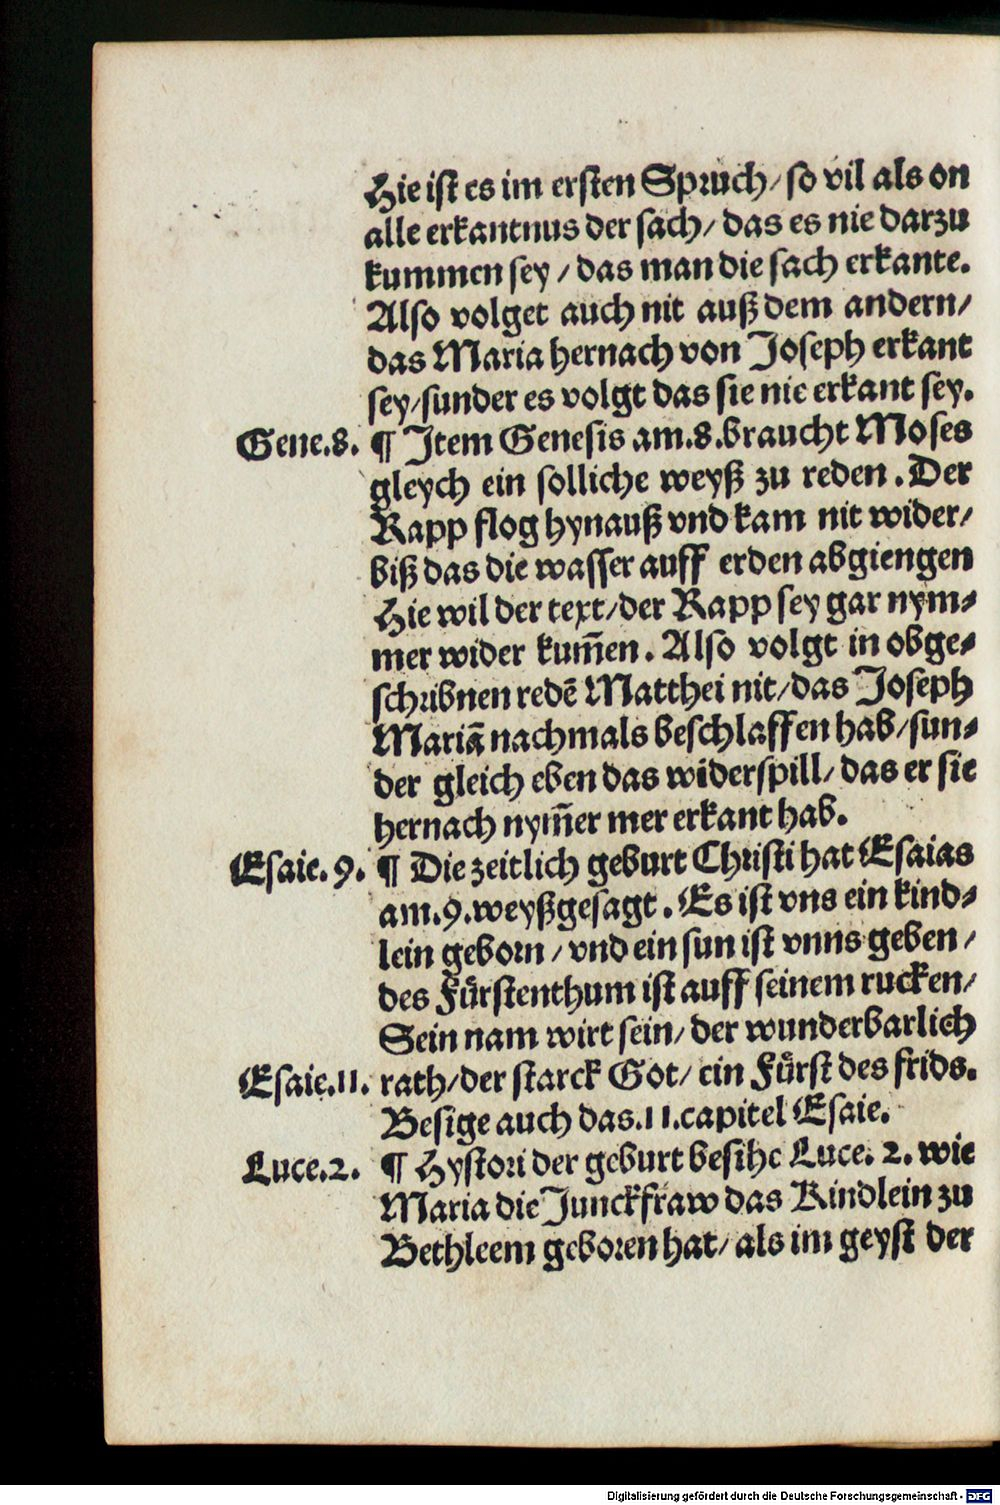 Hie ist es im ersten Spruch/ so vil als on
alle erkantnus der sach/ das es nie darzu
kummen sey / das man die sach erkante.
Also volget auch nit auß dem andern/
das Maria hernach von Joseph erkant
sey/sunder es volgt das sie nie erkant sey.
Gene.8. ¶ Item Genesis am.8.braucht Moses
gleych ein solliche weyß zu reden . Der
Rapp flog hynauß vnd kam nit wider/
biß das die wasser auff erden abgiengen
Hie wil der text/der Rapp sey gar nym⸗
mer wider kum̃en . Also volgt in obge⸗
schribnen redẽ Matthei nit/das Joseph
Mariã nachmals beschlaffen hab/sun⸗
der gleich eben das widerspill/ das er sie
hernach nym̃er mer erkant hab.
Esaie. 9. ¶ Die zeitlich geburt Christi hat Esaias
am.9.weyßgesagt . Es ist vns ein kind⸗
lein geborn / vnd ein sun ist vnns geben /
des Fürstenthum ist auff seinem rucken/
Sein nam wirt sein/ der wunderbarlich
Esaie.11. rath/der starck Got/ ein Fürst des frids.
Besige auch das.11.capitel Esaie.
Luce.2. ¶ Hystori der geburt besihe Luce. 2. wie
Maria die Junckfraw das Kindlein zu
Bethleem geboren hat/ als im geyst der
Digitalisierung gefördert durch die Deutsche Forschungsgemeinschaft - DFG